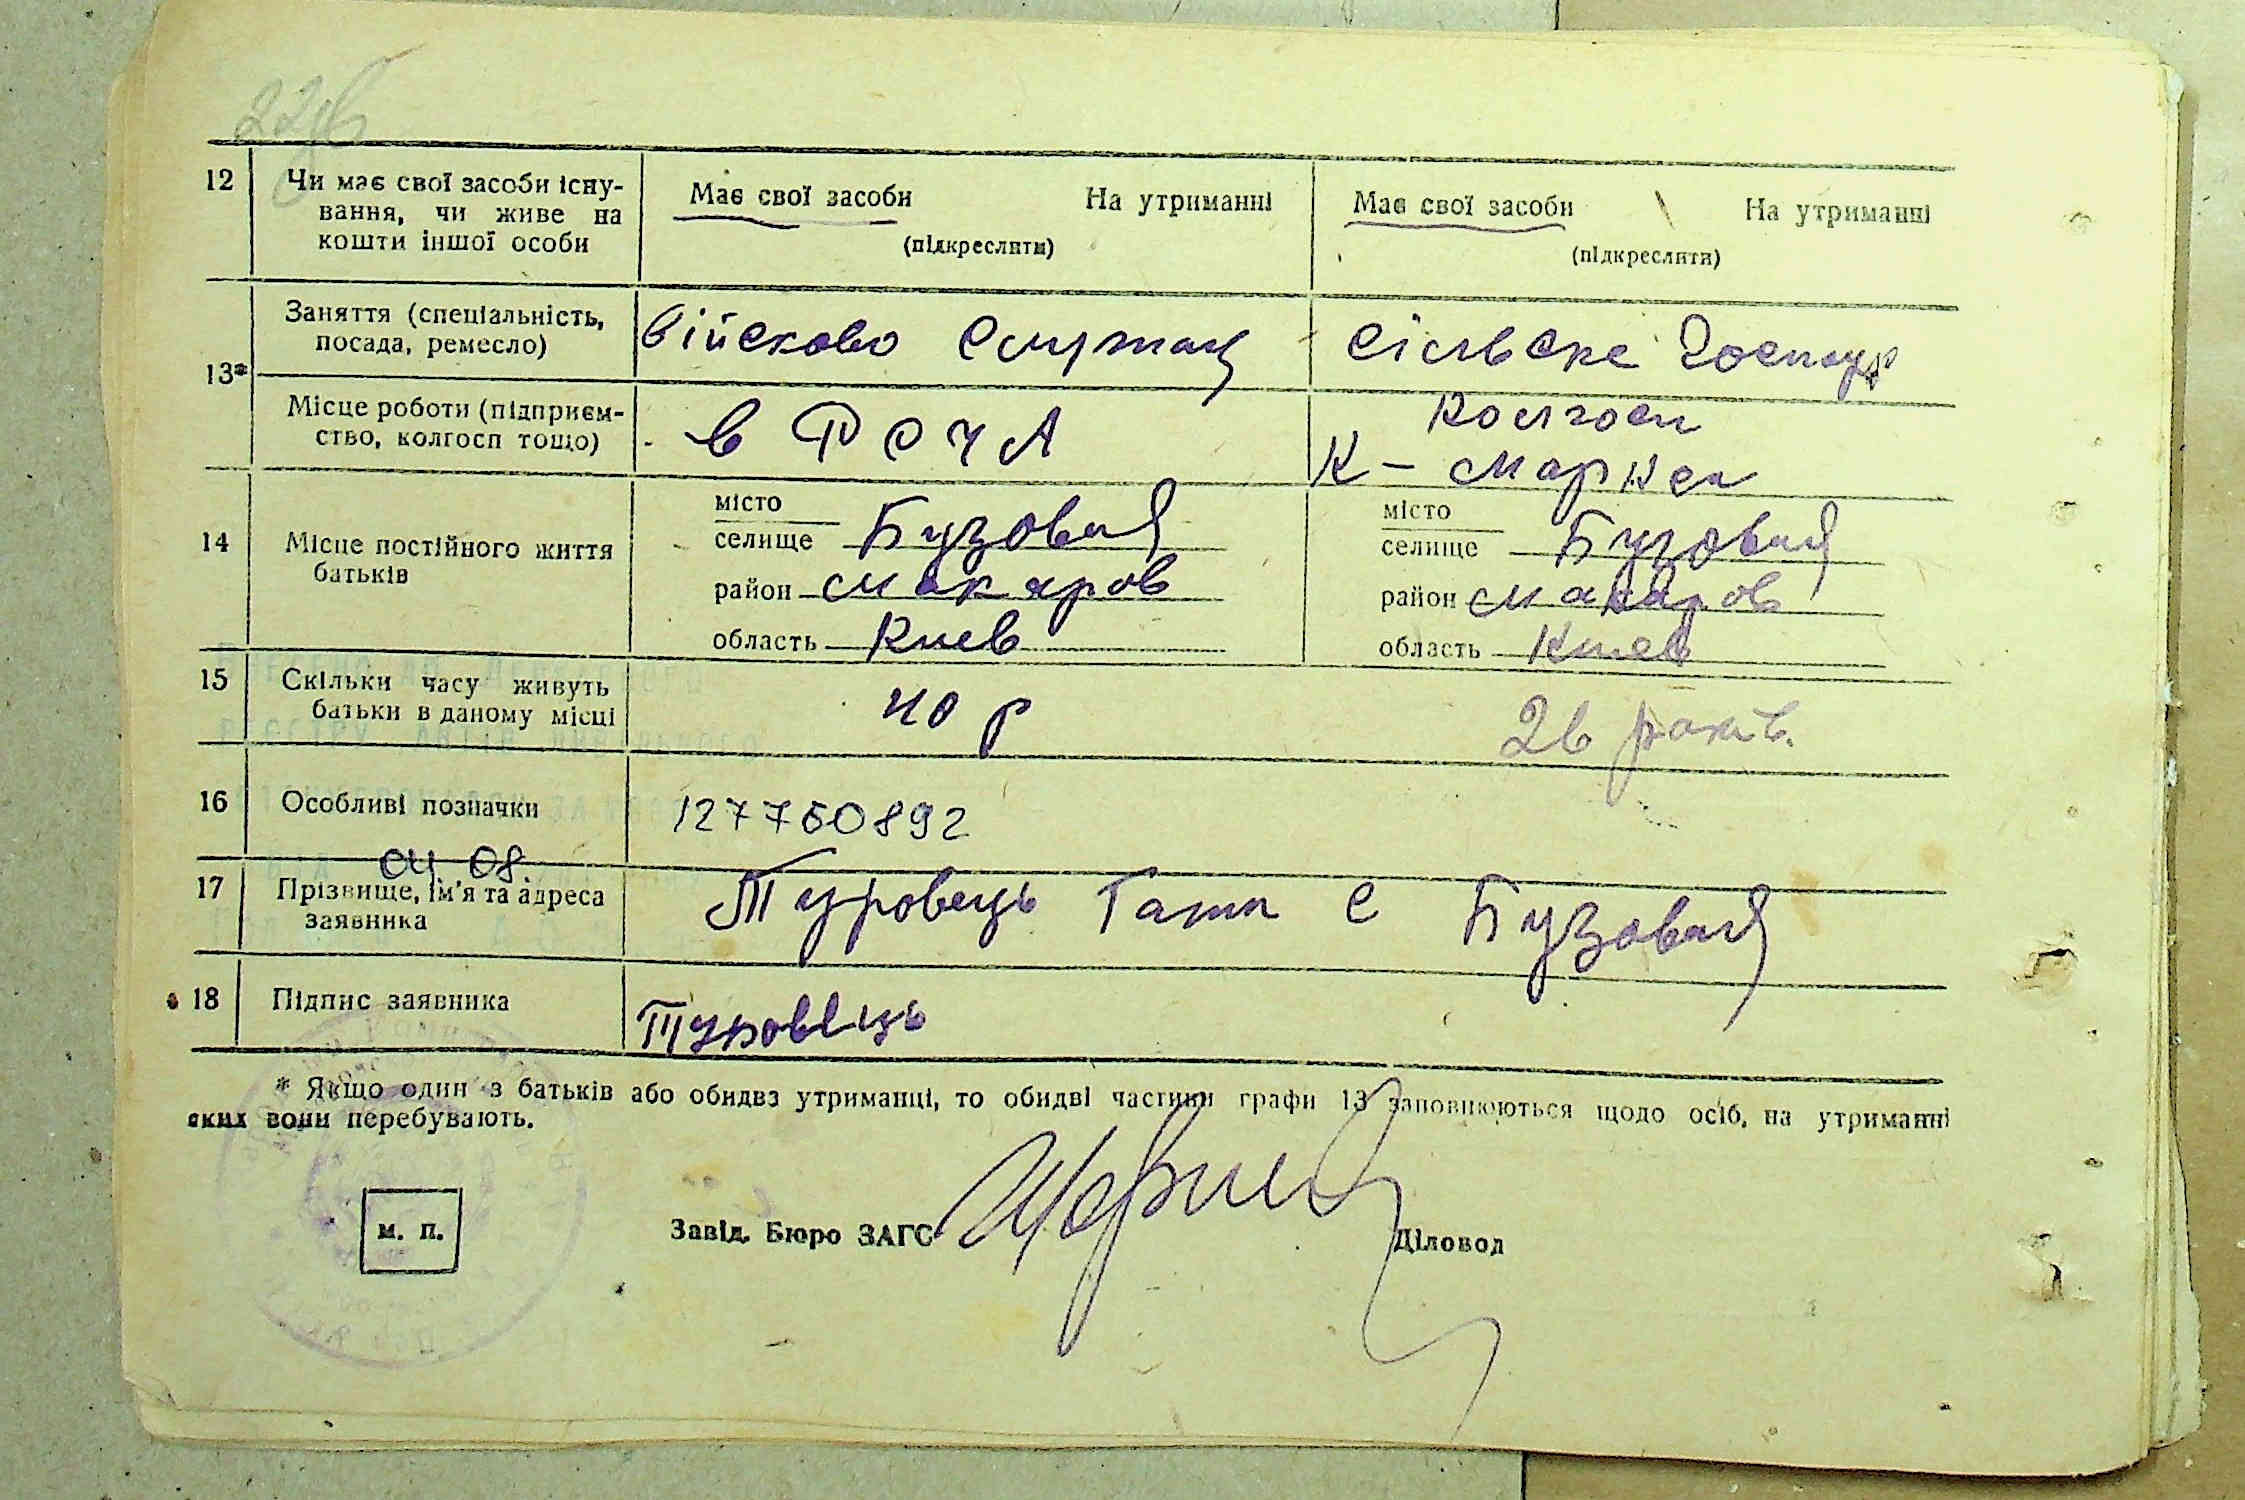 12 Чи має свої засоби існу-
вання, чи живе на
кошти іншої особи
Має свої засоби На утриманні
(підкреслити)
Має свої засоби На утриманні
(підкреслити)
13*
Заняття (спеціальність,
посада, ремесло)
Військово служащ
сільське господр
Місце роботи (підприєм-
ство, колгосп тощо)
в РСЧА
колгосп
К-Маркса
14 Місце постійного життя
батьків
місто
селище Бузовая
район Макаров
область Киев
місто
селище Бузовая
район Макаров
область Киев
15 Скільки часу живуть
батьки в даному місці
40 р
26 років.
16 Особливі позначки
127760892
04 08
17 Прізвище, ім'я та адреса
заявника
Туровець Ганн с Бузовая
18 Підпис заявника
Туровець
* Якщо один з батьків або обидва утриманці, то обидві частини графи 13 заповнюються щодо осіб, на утриманні
яких вони перебувають.
м. п.
Завід. Бюро ЗАГС
Діловод